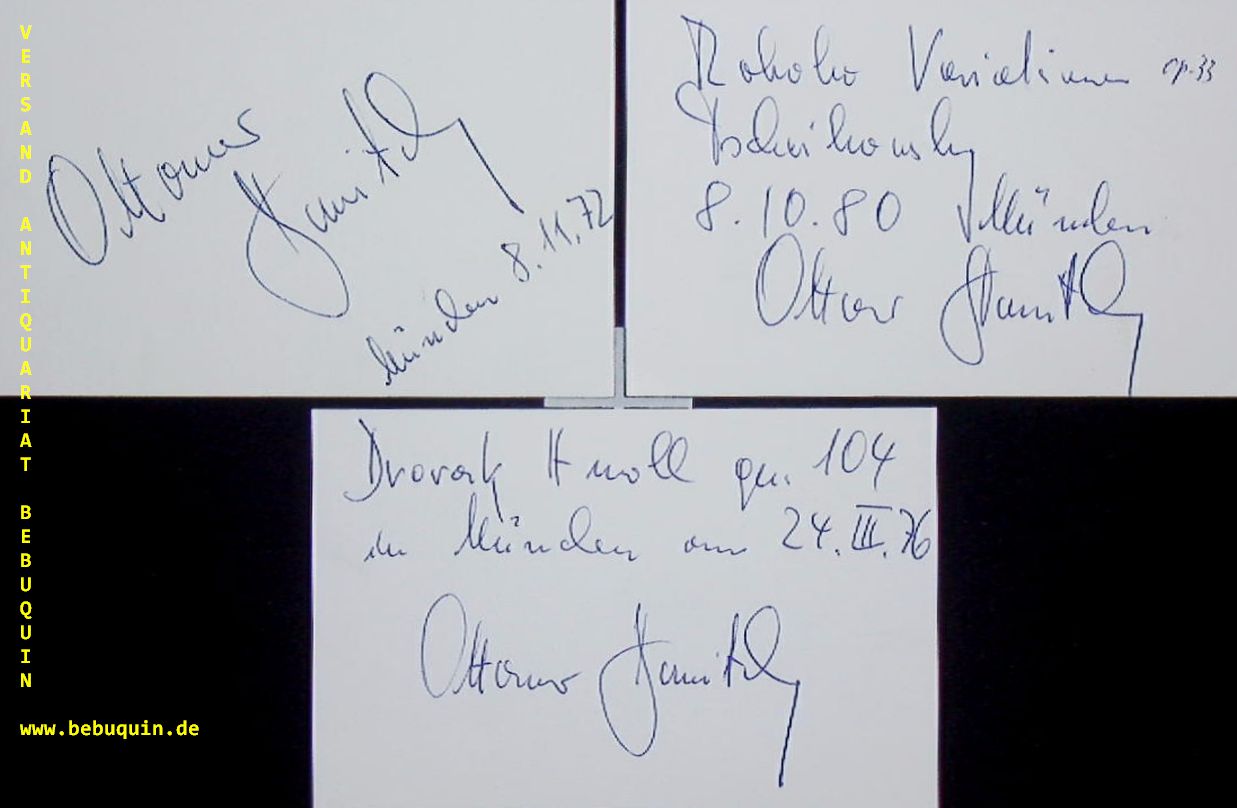 VERSAND ANTIQUARIAT BEBUQUIN
www.bebuquin.de
Ottomar
München 8.11.72
Rokoko Variationen op. 33
Tschaikowsky
8.10.80 München
Ottomar
Dvorak H moll op. 104
in München am 24. III. 76
Ottomar